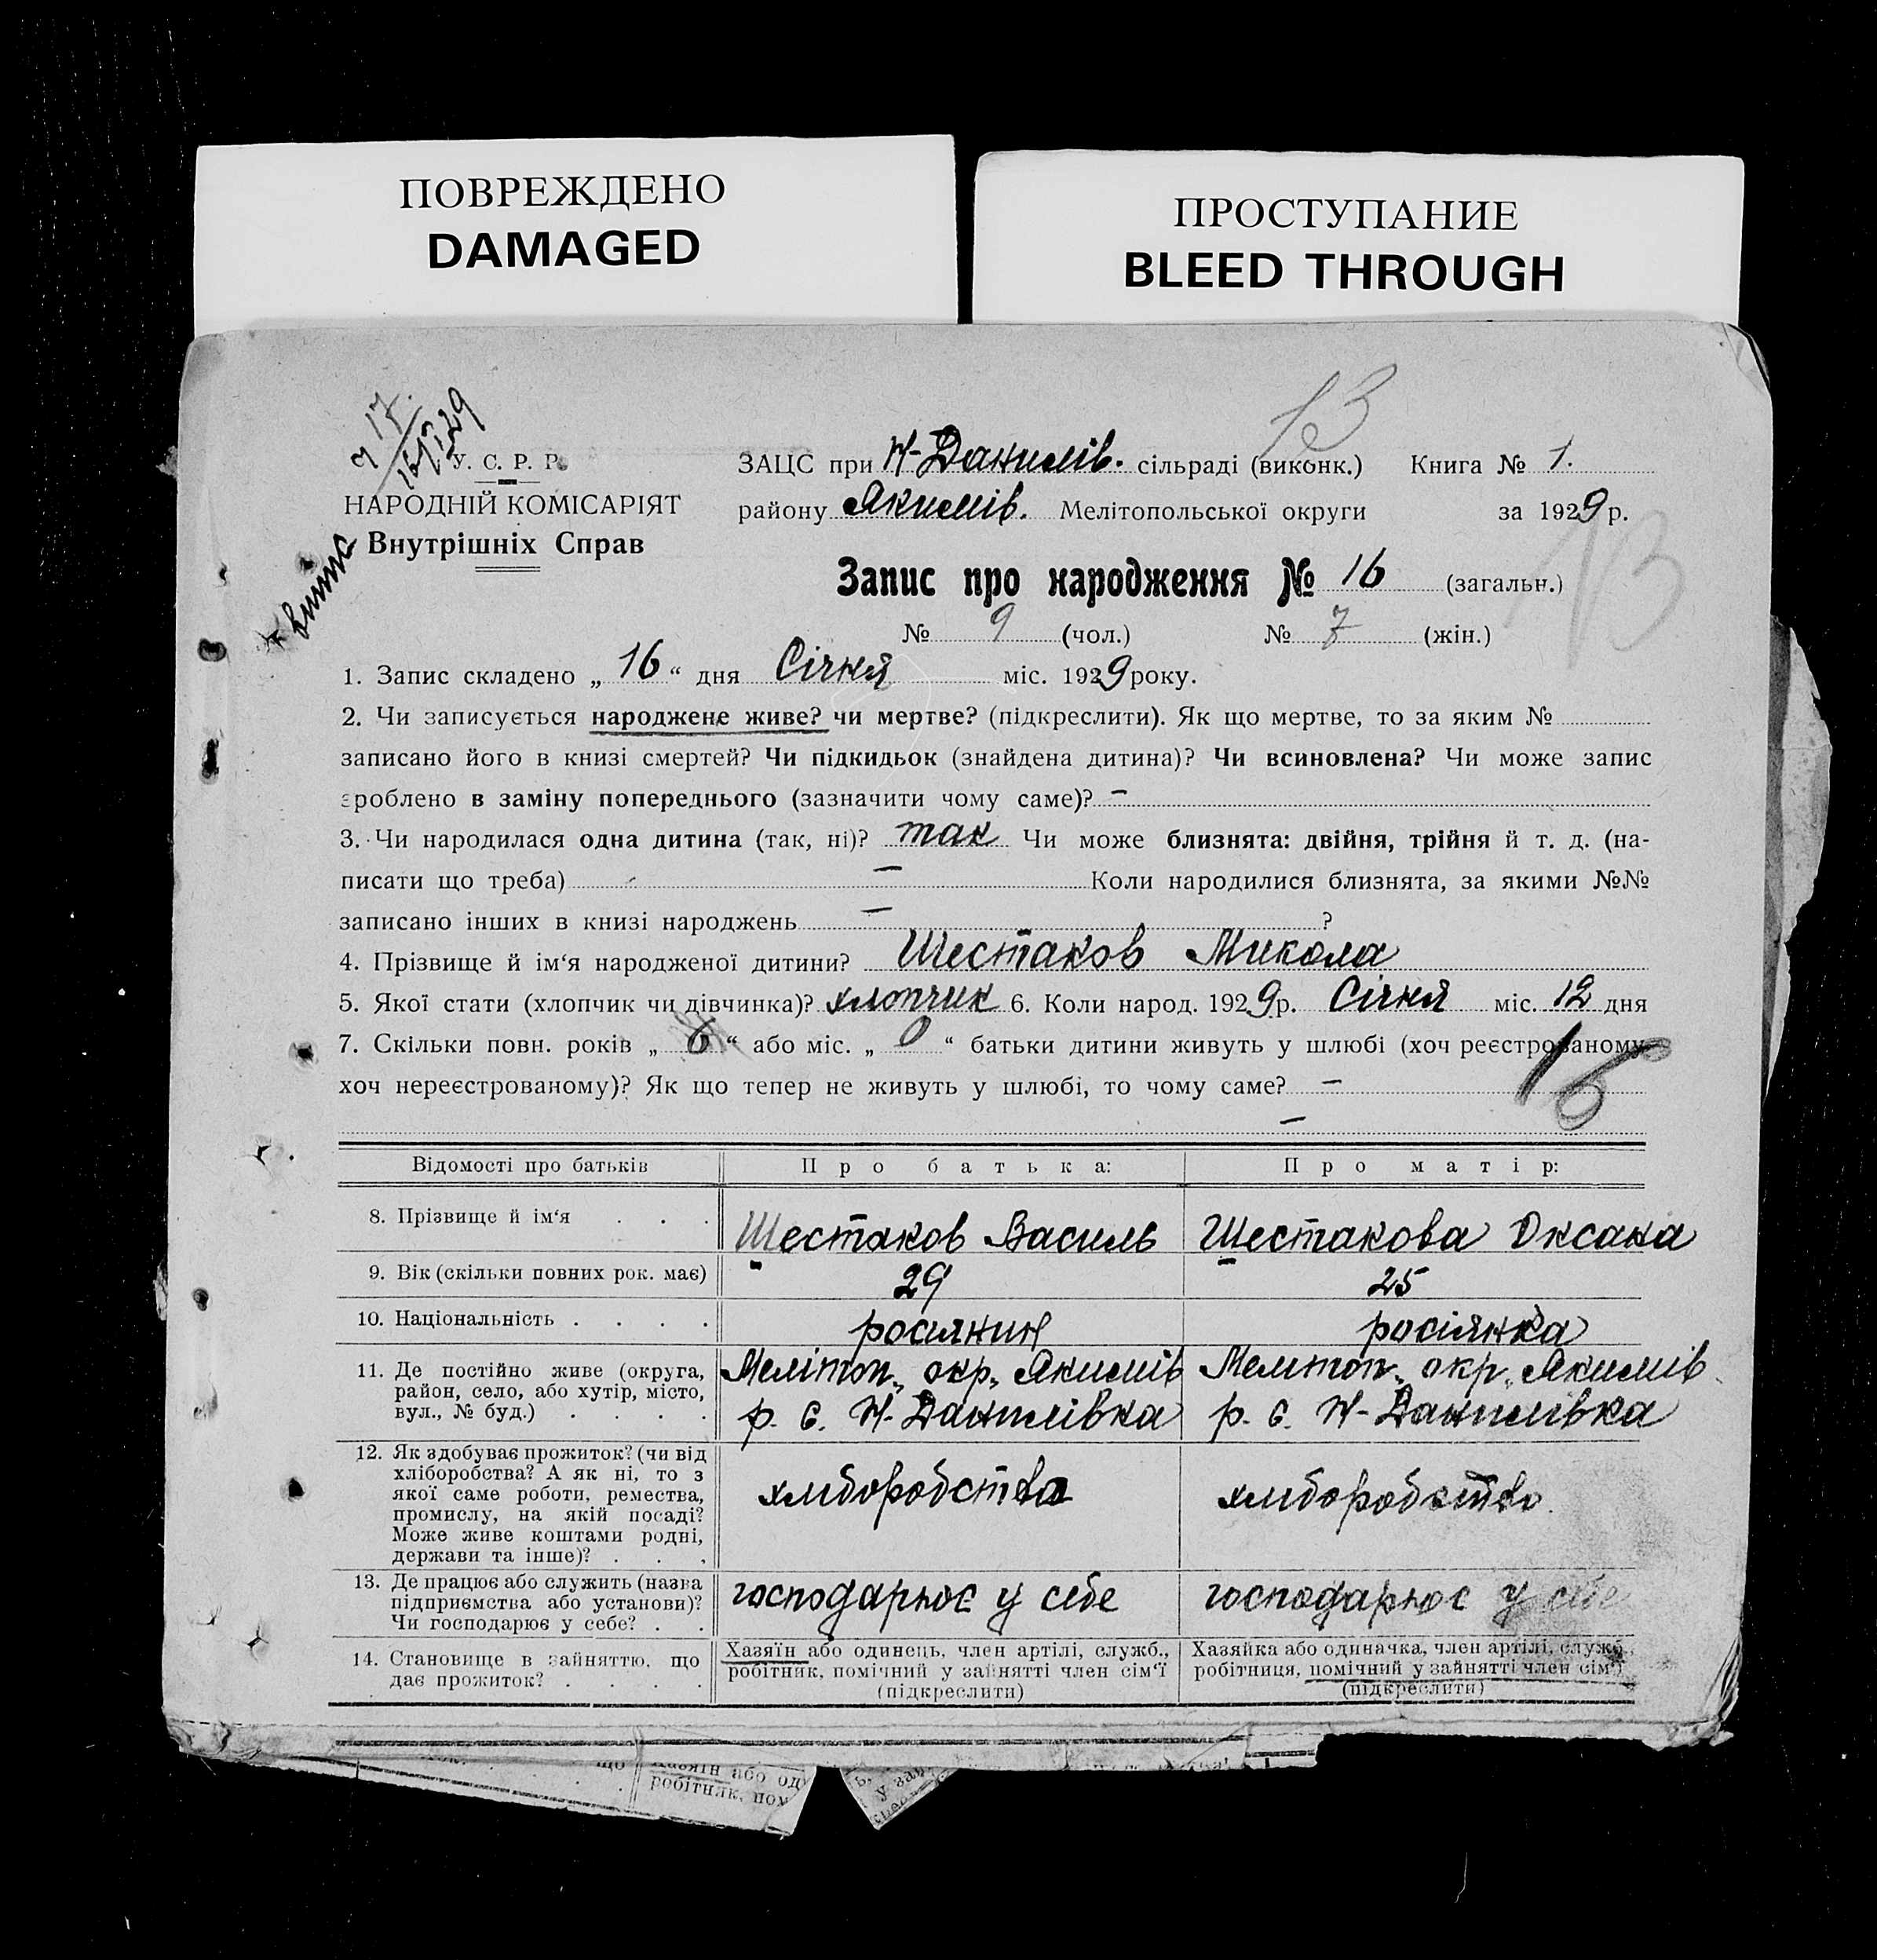 ПОВРЕЖДЕНО
DAMAGED
ПРОСТУПАНИЕ
BLEED THROUGH
13
У. С. Р. Р.
НАРОДНІЙ КОМІСАРІЯТ
Внутрішніх Справ
ЗАЦС при Н-Данилів. сільраді (виконк.) Книга № 1.
району Якимів. Мелітопольської округи за 1929 р.
13
Запис про народження № 16 (загальн.)
№ 9 (чол.) № 7 (жін.)
1. Запис складено „ 16 “ дня Січня міс. 1929 року.
2. Чи записується народжене живе? чи мертве? (підкреслити). Як що мертве, то за яким №
записано його в книзі смертей? Чи підкидьок (знайдена дитина)? Чи всиновлена? Чи може запис
зроблено в заміну попереднього (зазначити чому саме)? –
3. Чи народилася одна дитина (так, ні)? так Чи може близнята: двійня, трійня й т. д. (на-
писати що треба) – Коли народилися близнята, за якими №№
записано інших в книзі народжень – ?
4. Прізвище й ім‘я народженої дитини? Шестаков Микола
5. Якої стати (хлопчик чи дівчинка)? хлопчик 6. Коли народ. 1929 р. Січня міс. 12 дня
7. Скільки повн. років „ 6 “ або міс. „ 0 “ батьки дитини живуть у шлюбі (хоч реєстрованому
хоч нереєстрованому)? Як що тепер не живуть у шлюбі, то чому саме? –
16
–
Відомості про батьків Про батька: Про матір:
8. Прізвище й ім‘я . . . Шестаков Василь Шестакова Оксана
9. Вік (скільки повних рок. має) 29 25
10. Національність . . . . росіянин росіянка
11. Де постійно живе (округа, район, село, або хутір, місто, вул., № буд.) . . . .
Меліто​п. окр. Якимів
р. с. Н-Данилівка
Мелітоп. окр. Якимів
р. с. Н-Данилівка
12. Як здобуває прожиток? (чи від
хліборобства? А як ні, то з
якої саме роботи, ремества,
промислу, на якій посаді?
Може живе коштами родні,
держави та інше)? . . .
хліборобства
хліборобство.
13. Де працює або служить (назва
підприємства або установи)?
Чи господарює у себе? . .
господарює у себе
господарює у себе
14. Становище в зайняттю, що
дає прожиток? . . . .
Хазяїн або одинець, член артілі, служб.,
робітник, помічний у зайнятті член сім‘ї
(підкреслити)
Хазяйка або одиначка, член артілі, служб.,
робітниця, помічний у зайнятті член сім‘ї
(підкреслити)